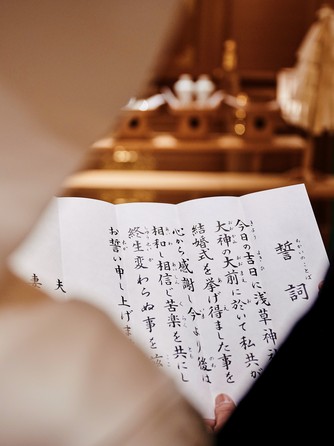 誓詞
ちかいのことば
今日の吉日に浅草神
大神の大前に於いて私共が
結婚式を挙げ得ました事を
心から感謝し今より後は
相和し相信じ苦楽を共にし
終生変わらぬ事を
お誓い申し上げま
夫
妻